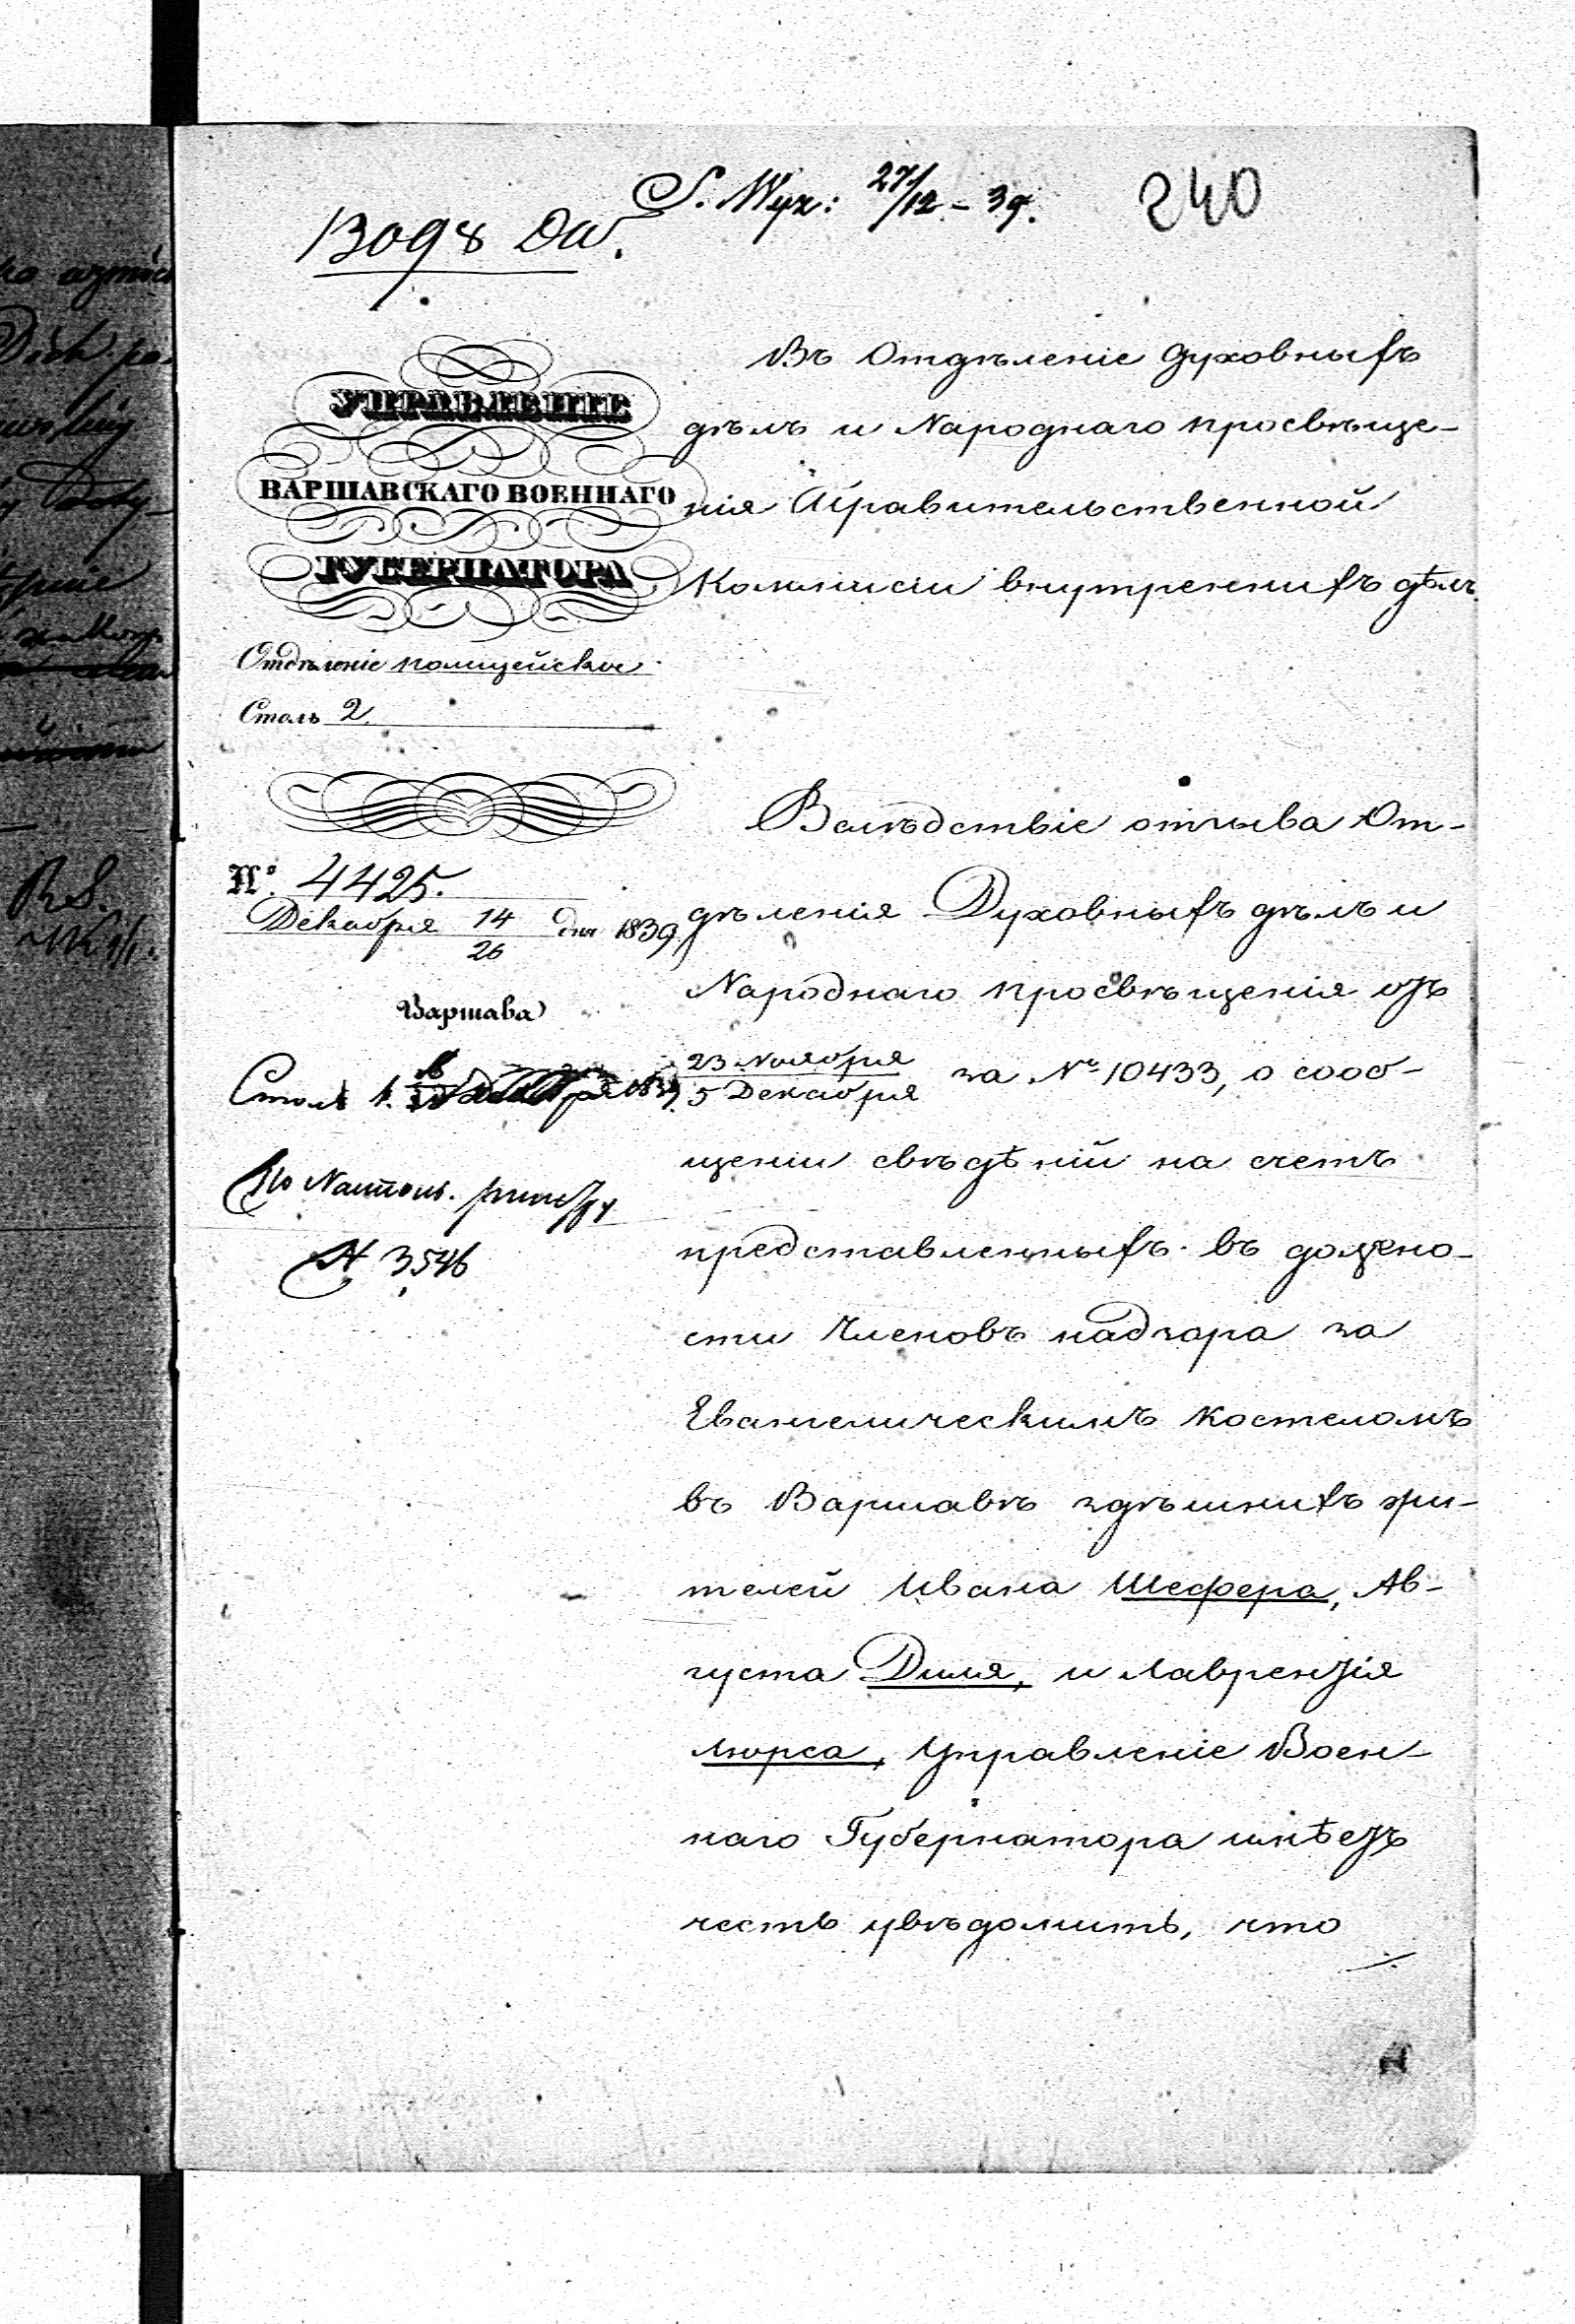 S. Wyz: 27/12 - 39. 240
13098 Da.
УПРАВЛЕНІЕ
ВАРШАВСКАГО ВОЕННАГО
ГУБЕРНАТОРА
Отдѣленіе полицейское
Столъ 2.
№. 4425.
Декабря 14/26 дня 1839
Варшава
Столъ 1.
По Настол. реестру
№ 3546
Въ Отдѣленіе Духовныхъ
дѣлъ и Народнаго просвѣще-
нія Правительственной
Коммисіи внутреннихъ дѣлъ.
Вслѣдствіе отзыва От-
дѣленія Духовныхъ дѣлъ и
Народнаго просвѣщенія отъ
23 Ноября/5 Декабря за № 10433, о сооб-
щеніи свѣдѣній на счетъ
представленныхъ въ должно-
сти Членовъ надзора за
Евангелическимъ костеломъ
въ Варшавѣ здѣшнихъ жи-
телей Ивана Шефера, Ав-
густа Диля, и Лаврентія
Люрса, Управленіе Воен-
наго Губернатора имѣетъ
честь увѣдомить, что